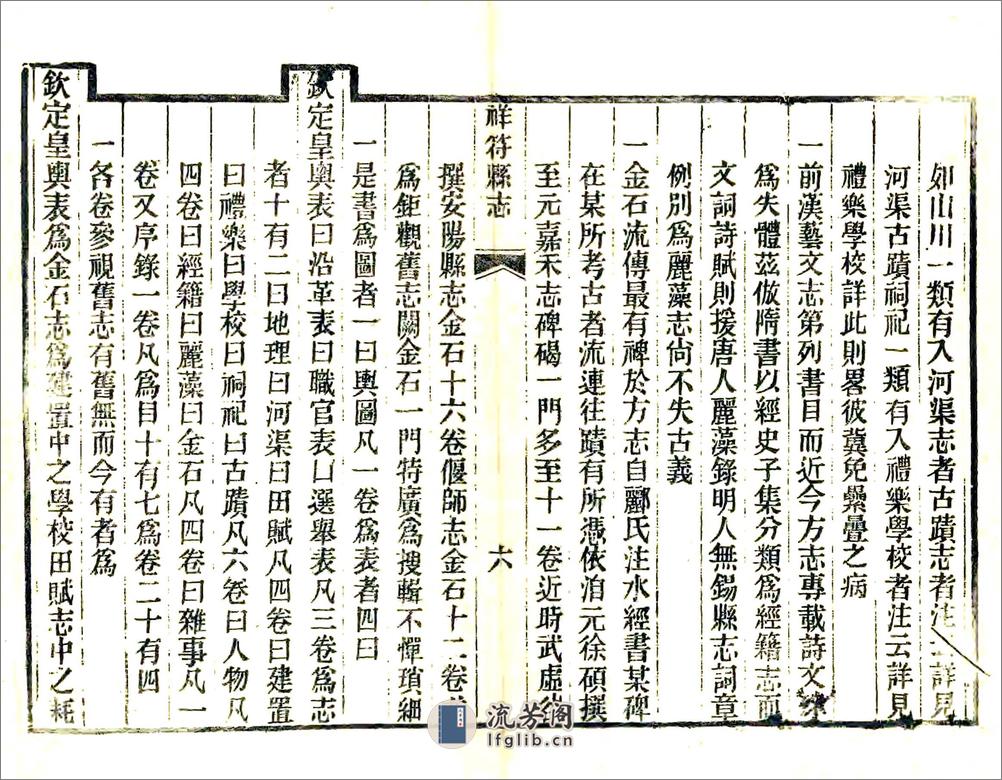 如山川一類有入河渠志者古蹟志者注云詳見
河渠古蹟祠祀一類有入禮樂學校者注云詳見
禮樂學校詳此則畧彼冀免纍疊之病
一前漢藝文志第列書目而近今方志專載詩文
為失體茲倣隋書以經史子集分類為經籍志而
文詞詩賦則援唐人麗藻錄明人無錫縣志詞章
例別為麗藻志尙不失古義
一金石流傳最有裨於方志自酈氏注水經書某碑
在某所考古者流連往蹟有所憑依洎元徐碩撰
至元嘉禾志碑碣一門多至十一卷近時武虛谷
祥符縣志
六
撰安陽縣志金石十六卷偃師志金石十二卷
為鉅觀舊志闕金石一門特廣為搜輯不憚瑣細
一是書為圖者一曰輿圖凡一卷為表者四曰
欽定皇輿表曰沿革表曰職官表曰選舉表凡三卷為志
者十有二曰地理曰河渠曰田賦凡四卷曰建置
曰禮樂曰學校曰祠祀曰古蹟凡六卷曰人物凡
四卷曰經籍曰麗藻曰金石凡四卷曰雜事凡一
卷又序錄一卷凡為目十有七為卷二十有四
一各卷參視舊志有舊無而今有者為
欽定皇輿表為金石志為建置中之學校田賦志中之耗
流芳閣
lfglib.cn